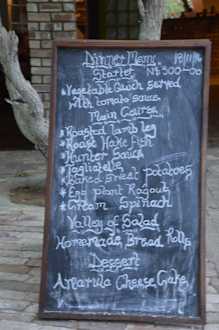 Dinner Menu
Starter N$ 300-00
* Vegetable Quich served
with tomato sauce
Main Course
* Roasted lamb leg
* Roast Hake Fish
* Hunter Sauce
* Tagliatelle
* sweet potatoes
* Egg plant Ragout
* Cream Spinach
Valley of Salad
Homemade Bread Rolls
Dessert
Amarula Cheese Cake